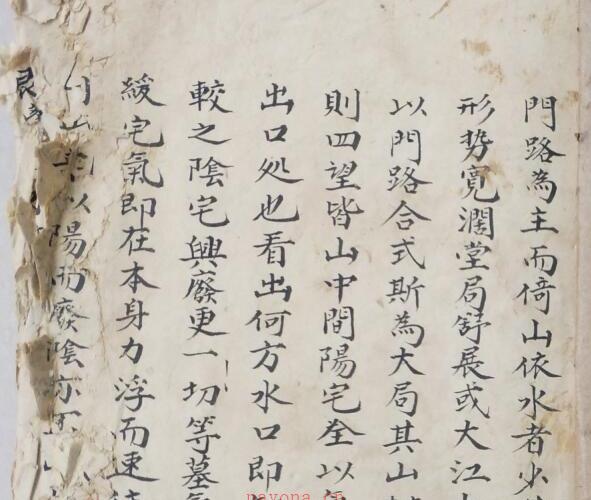 門路為主而倚山依水者少
形势寛濶堂局舒展或大江
以門路合式斯為大局其山
則四望皆山中間陽宅全以
出口处也看出何方水口即
較之陰宅興廢更一切等墓氣
緩宅氣即在本身力浮而速
以陽而廢陰亦
良
nayona.cn